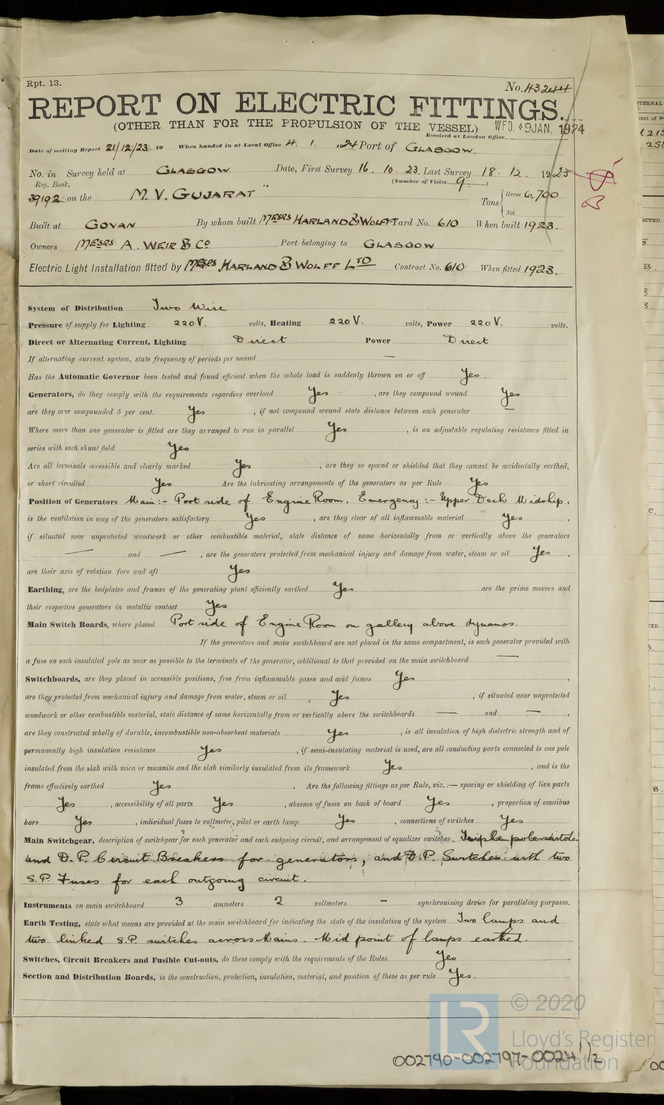 Rpt. 13.
No. 43244
REPORT ON ELECTRIC FITTINGS.
(OTHER THAN FOR THE PROPULSION OF THE VESSEL) WED. 9 JAN. 1924
Received at London Office
Date of writing Report 21/12/23 19 When handed in at Local Office 4. 1. 1924 Port of GLASGOW.
No. in Survey held at GLASGOW Date, First Survey 16. 10. 23. Last Survey 18. 12. 1923
Reg. Book. (Number of Visits 9)
39192 on the M.V. GUJARAT" Tons { Gross 6,700
Net
Built at GOVAN By whom built MESSRS HARLAND & WOLFF Yard No. 610 When built 1923.
Owners MESSRS A. WEIR & CO Port belonging to GLASGOW
Electric Light Installation fitted by MESSRS HARLAND & WOLFF LTD Contract No. 610 When fitted 1923.
System of Distribution Two Wire
Pressure of supply for Lighting 220 V. volts, Heating 220 V. volts, Power 220 V. volts.
Direct or Alternating Current, Lighting Direct Power Direct
If alternating current system, state frequency of periods per second —
Has the Automatic Governor been tested and found efficient when the whole load is suddenly thrown on or off Yes.
Generators, do they comply with the requirements regarding overload Yes, are they compound wound Yes
are they over compounded 5 per cent. Yes, if not compound wound state distance between each generator —
Where more than one generator is fitted are they arranged to run in parallel Yes, is an adjustable regulating resistance fitted in
series with each shunt field Yes
Are all terminals accessible and clearly marked Yes, are they so spaced or shielded that they cannot be accidentally earthed,
or short circuited Yes Are the lubricating arrangements of the generators as per Rule Yes
Position of Generators Main:- Port side of Engine Room. Emergency:- Upper Deck Midship.
is the ventilation in way of the generators satisfactory Yes, are they clear of all inflammable material Yes,
if situated near unprotected woodwork or other combustible material, state distance of same horizontally from or vertically above the generators
— and —, are the generators protected from mechanical injury and damage from water, steam or oil Yes,
are their axis of rotation fore and aft Yes
Earthing, are the bedplates and frames of the generating plant efficiently earthed Yes are the prime movers and
their respective generators in metallic contact Yes
Main Switch Boards, where placed Port side of Engine Room on gallery above dynamos.
If the generators and main switchboard are not placed in the same compartment, is each generator provided with
a fuse on each insulated pole as near as possible to the terminals of the generator, additional to that provided on the main switchboard —
Switchboards, are they placed in accessible positions, free from inflammable gases and acid fumes Yes,
are they protected from mechanical injury and damage from water, steam or oil Yes, if situated near unprotected
woodwork or other combustible material, state distance of same horizontally from or vertically above the switchboards — and —,
are they constructed wholly of durable, incombustible non-absorbent materials Yes, is all insulation of high dielectric strength and of
permanently high insulation resistance Yes, if semi-insulating material is used, are all conducting parts connected to one pole
insulated from the slab with mica or micanite and the slab similarly insulated from its framework Yes, and is the
frame effectively earthed Yes. Are the following fittings as per Rule, viz. :— spacing or shielding of live parts
Yes, accessibility of all parts Yes, absence of fuses on back of board Yes, proportion of omnibus
bars Yes, individual fuses to voltmeter, pilot or earth lamp Yes, connections of switches Yes
Main Switchgear, description of switchgear for each generator and each outgoing circuit, and arrangement of equalizer switches. Triple pole
and D.P. Circuit Breakers for generators, and D.P. Switches with two
S.P. Fuses for each outgoing circuit.
Instruments on main switchboard 3 ammeters 2 voltmeters – synchronising device for paralleling purposes.
Earth Testing, state what means are provided at the main switchboard for indicating the state of the insulation of the system Two lamps and
two linked S.P. switches across Mains. Mid point of lamps earthed.
Switches, Circuit Breakers and Fusible Cut-outs, do these comply with the requirements of the Rules Yes
Section and Distribution Boards, is the construction, protection, insulation, material, and position of these as per rule Yes.
© 2020
LR
Lloyd's Register
Foundation
002790-002797-0024 1/2